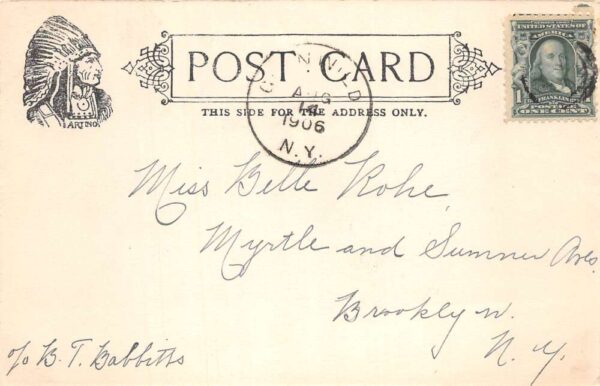 POST CARD
THIS SIDE FOR THE ADDRESS ONLY.
ARTINO
AUG
14
1906
N.Y.
UNITED STATES OF
AMERICA
FRANKLIN
POSTAGE
1 ONE CENT 1
Miss Belle Rohe,
Myrtle and Sumner Aves
Brooklyn.
N. Y.
c/o B. T. Babbitts